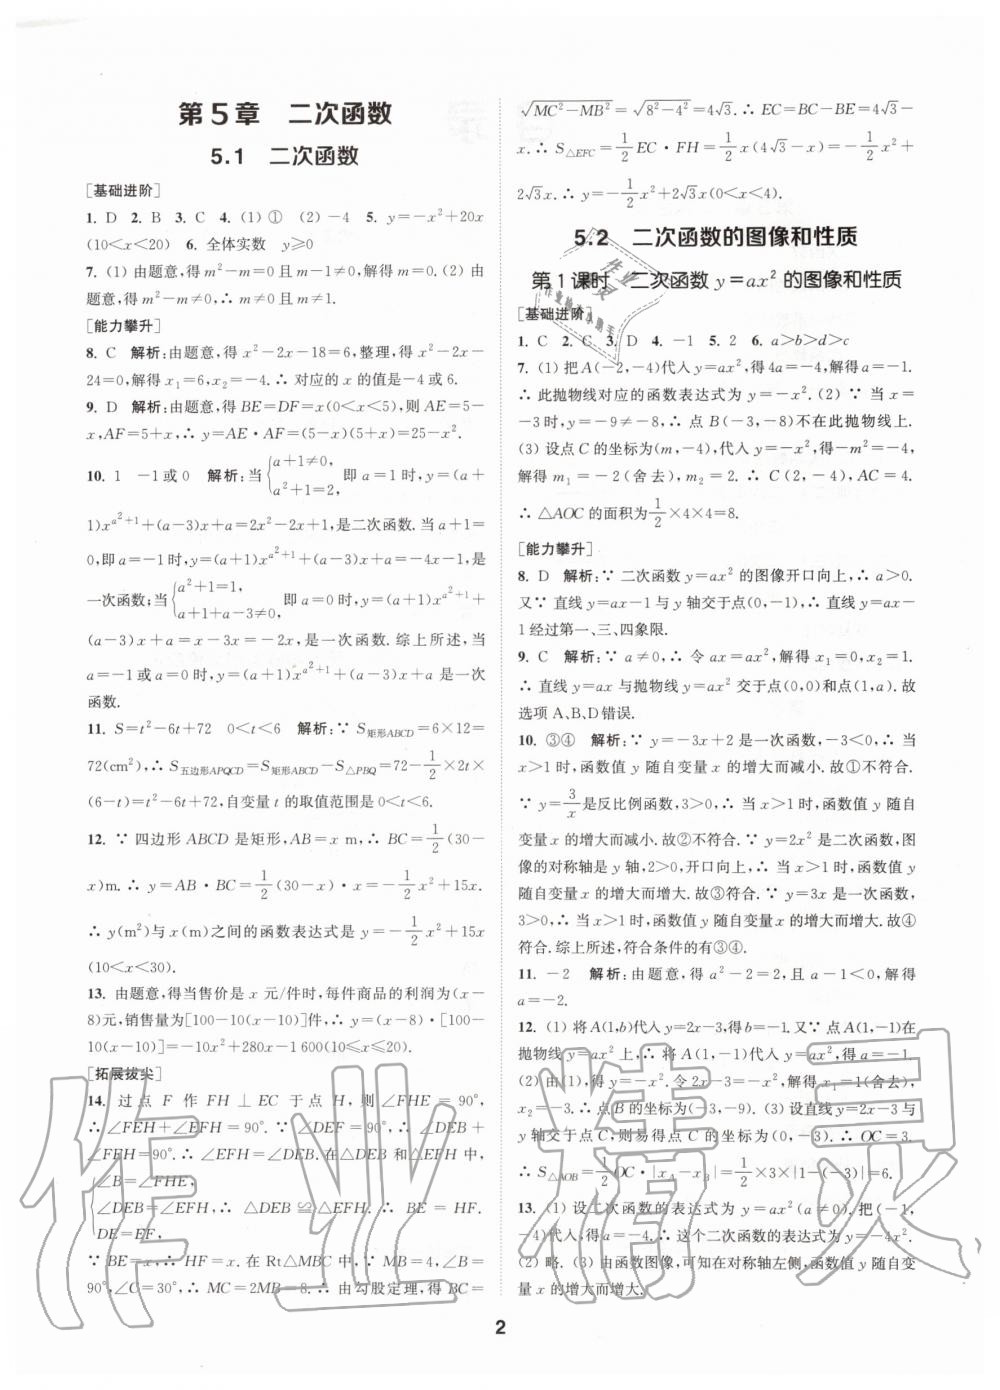 第5章　二次函数
5.1　二次函数
[基础进阶]
1. D　2. B　3. C　4. (1) ①　(2) －4　5. y＝－x²＋20x
(10＜x＜20)　6. 全体实数　y≥0
7. (1) 由题意,得 m²－m＝0 且 m－1≠0,∴ m＝0. (2) 由
题意,得 m²－m≠0,∴ m≠0 且 m≠1.
[能力攀升]
8. C　解析:由题意,得 x²－2x－18＝6,整理,得 x²－2x－
24＝0,解得 x₁＝6,x₂＝－4.∴ 对应的 x 的值是－4或6.
9. D　解析:由题意,得 BE＝DF＝x(0＜x＜5),则 AE＝5－
x,AF＝5＋x,∴ y＝AE·AF＝(5－x)(5＋x)＝25－x².
10. 1　－1或0　解析:当{a＋1≠0, a²＋1＝2, 即 a＝1时,y＝(a＋
1)x^(a²＋1)＋(a－3)x＋a＝2x²－2x＋1,是二次函数.当 a＋1＝
0,即 a＝－1时,y＝(a＋1)x^(a²＋1)＋(a－3)x＋a＝－4x－1,是
一次函数;当{a²＋1＝1, a＋1＋a－3≠0, 即 a＝0时,y＝(a＋1)x^(a²＋1)＋
(a－3)x＋a＝x－3x＝－2x,是一次函数.综上所述,当
a＝－1或 a＝0时,y＝(a＋1)x^(a²＋1)＋(a－3)x＋a 是一次
函数.
11. S＝t²－6t＋72　0＜t＜6　解析:∵ S矩形ABCD＝6×12＝
72(cm²),∴ S五边形APQCD＝S矩形ABCD－S△PBQ＝72－1/2×2t×
(6－t)＝t²－6t＋72,自变量 t 的取值范围是0＜t＜6.
12. ∵ 四边形 ABCD 是矩形,AB＝x m,∴ BC＝1/2(30－
x)m.∴ y＝AB·BC＝1/2(30－x)·x＝－1/2x²＋15x.
∴ y(m²)与 x(m)之间的函数表达式是 y＝－1/2x²＋15x
(10＜x＜30).
13. 由题意,得当售价是 x 元/件时,每件商品的利润为(x－
8)元,销售量为[100－10(x－10)]件,∴ y＝(x－8)·[100－
10(x－10)]＝－10x²＋280x－1 600(10≤x≤20).
[拓展拔尖]
14. 过点 F 作 FH⊥EC 于点 H,则∠FHE＝90°.
∴ ∠FEH＋∠EFH＝90°.∵ ∠DEF＝90°,∴ ∠DEB＋
∠FEH＝90°.∴ ∠DEB＝∠EFH.在△DEB 和△EFH 中,
{∠B＝∠FHE,
∠DEB＝∠EFH,∴ △DEB≌△EFH.∴ BE＝HF.
DE＝EF,
∵ BE＝x,∴ HF＝x.在 Rt△MBC 中,∵ MB＝4,∠B＝
90°,∠C＝30°,∴ MC＝2MB＝8.∴ 由勾股定理,得 BC＝
√(MC²－MB²)＝√(8²－4²)＝4√3.∴ EC＝BC－BE＝4√3－
x.∴ S△EFC＝1/2EC·FH＝1/2x(4√3－x)＝－1/2x²＋
2√3x.∴ y＝－1/2x²＋2√3x(0＜x＜4).
5.2　二次函数的图像和性质
第1课时　二次函数 y＝ax² 的图像和性质
[基础进阶]
1. C　2. C　3. D　4. －1　5. 2　6. a＞b＞d＞c
7. (1) 把 A(－2,－4)代入 y＝ax²,得4a＝－4,解得 a＝－1.
∴ 此抛物线对应的函数表达式为 y＝－x². (2) ∵ 当 x＝
－3时,y＝－9≠－8,∴ 点 B(－3,－8)不在此抛物线上.
(3) 设点 C 的坐标为(m,－4),代入 y＝－x²,得－m²＝－4,
解得 m₁＝－2(舍去),m₂＝2.∴ C(2,－4),AC＝4.
∴ △AOC 的面积为1/2×4×4＝8.
[能力攀升]
8. D　解析:∵ 二次函数 y＝ax² 的图像开口向上,∴ a＞0.
又∵ 直线 y＝ax－1与 y 轴交于点(0,－1),∴ 直线 y＝ax－
1经过第一、三、四象限.
9. C　解析:∵ a≠0,∴ 令 ax＝ax²,解得 x₁＝0,x₂＝1.
∴ 直线 y＝ax 与抛物线 y＝ax² 交于点(0,0)和点(1,a).故
选项 A、B、D 错误.
10. ③④　解析:∵ y＝－3x＋2是一次函数,－3＜0,∴ 当
x＞1时,函数值 y 随自变量 x 的增大而减小.故①不符合.
∵ y＝3/x是反比例函数,3＞0,∴ 当 x＞1时,函数值 y 随自
变量 x 的增大而减小.故②不符合.∵ y＝2x² 是二次函数,图
像的对称轴是 y 轴,2＞0,开口向上,∴ 当 x＞1时,函数值 y
随自变量 x 的增大而增大.故③符合.∵ y＝3x 是一次函数,
3＞0,∴ 当 x＞1时,函数值 y 随自变量 x 的增大而增大.故④
符合.综上所述,符合条件的有③④.
11. －2　解析:由题意,得 a²－2＝2,且 a－1＜0,解得
a＝－2.
12. (1) 将 A(1,b)代入 y＝2x－3,得 b＝－1.又∵ 点 A(1,－1)在
抛物线 y＝ax² 上,∴ 将 A(1,－1)代入 y＝ax²,得 a＝－1.
(2) 由(1),得 y＝－x².令2x－3＝－x²,解得 x₁＝1(舍去),
x₂＝－3.∴ 点 B 的坐标为(－3,－9). (3) 设直线 y＝2x－3与
y 轴交于点 C,则易得点 C 的坐标为(0,－3).∴ OC＝3.
∴ S△AOB＝1/2OC·|xA－xB|＝1/2×3×|1－(－3)|＝6.
13. (1) 设二次函数的表达式为 y＝ax²(a≠0).把(－1,
－4)代入,得 a＝－4.∴ 这个二次函数的表达式为 y＝－4x².
(2) 略. (3) 由函数图像,可知在对称轴左侧,函数值 y 随自
变量 x 的增大而增大.
2
作业精灵